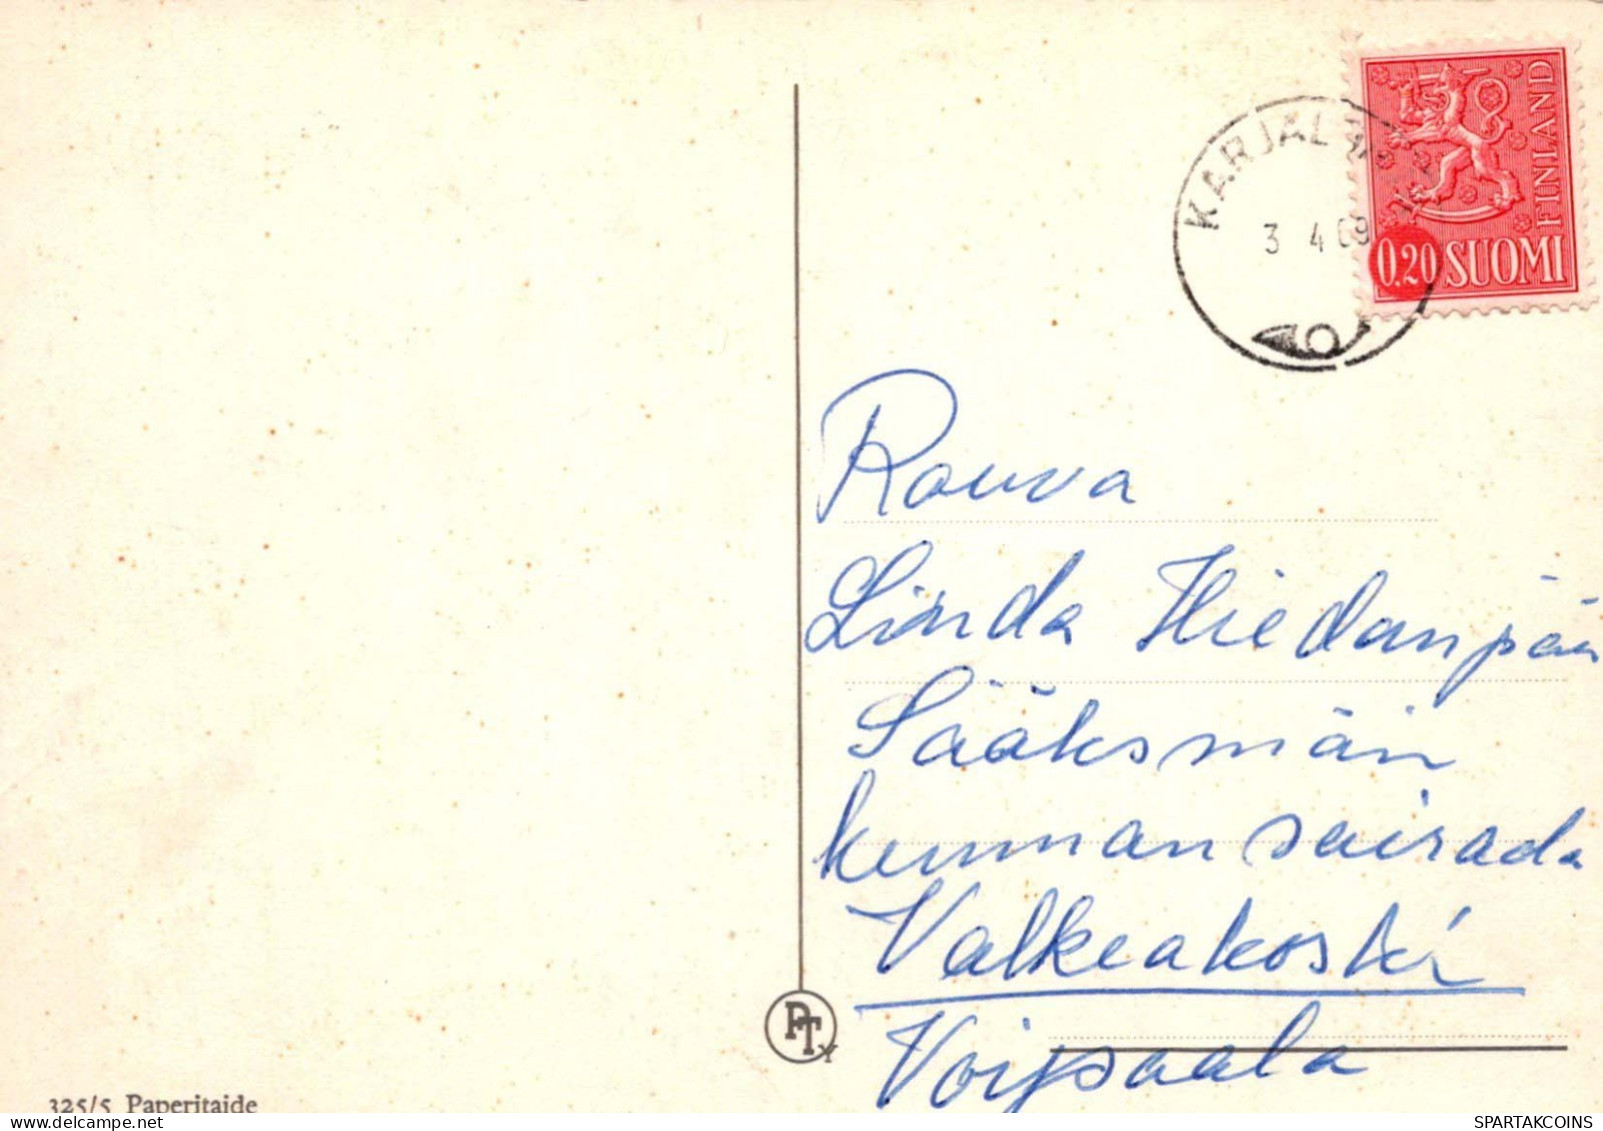 KARJAL
3 4 69
FINLAND
0,20 SUOMI
Rouva
Linda Hiedanpää
Sääksmän
kunnansairada
Valkeakoski
Voipaala
PTy
325/5 Paperitaide
SPARTAKCOINS